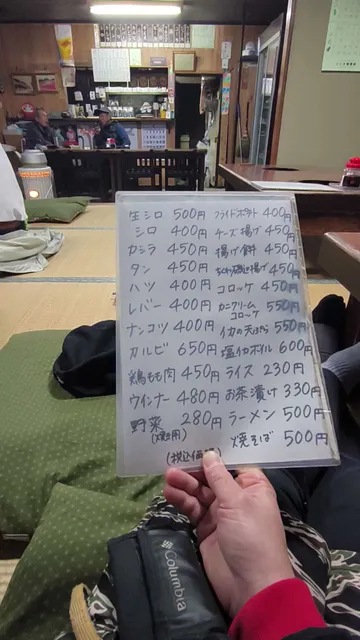 生シロ 500円
シロ 400円
カシラ 450円
タン 450円
ハツ 400円
レバー 400円
ナンコツ 400円
カルビ 650円
鶏もも肉 450円
ウインナー 480円
野菜 280円
(焼き用)
フライドポテト 400円
チーズ揚げ 450円
揚げ餅 450円
ちくわ磯辺揚げ 450円
コロッケ 450円
カニクリームコロッケ 550円
イカの天ぷら 550円
塩イカボイル 600円
ライス 230円
お茶漬け 330円
ラーメン 500円
焼そば 500円
(税込価格)
Columbia